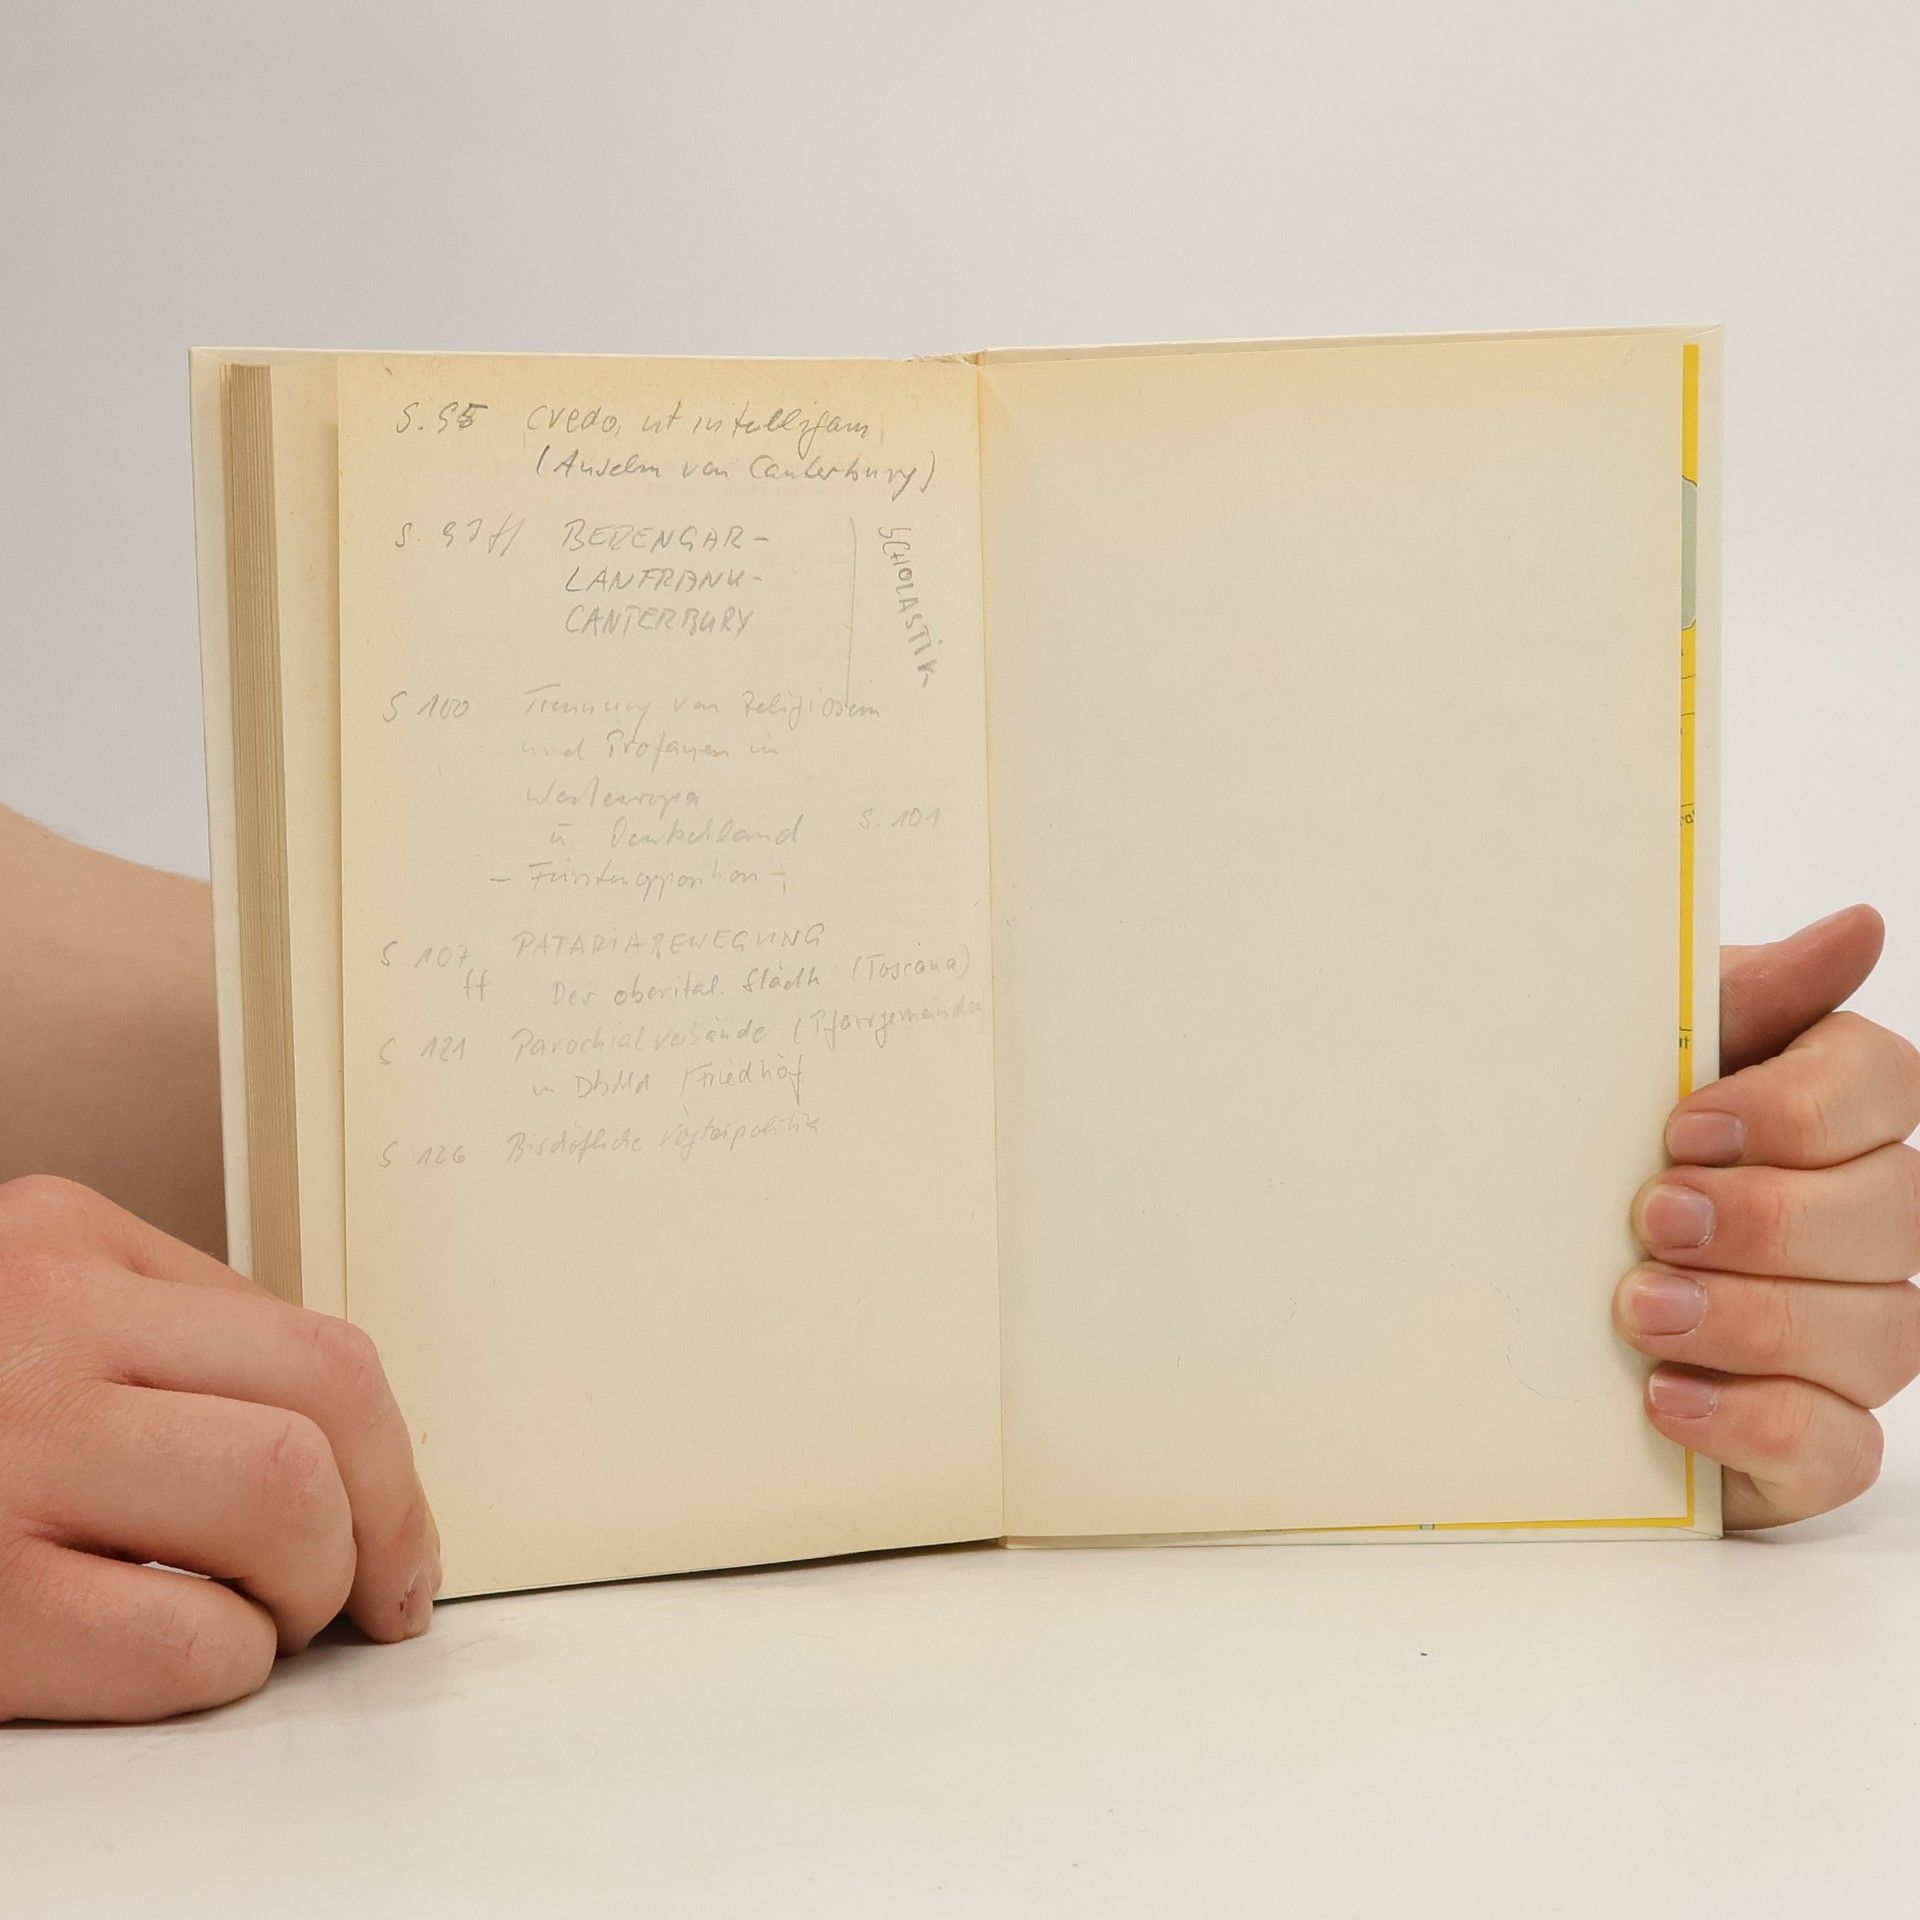 S. 95 credo, ut intelligam
(Anselm von Canterbury)
S. 93 ff BERENGAR-
LANFRANK-
CANTERBURY
SCHOLASTIK
S 100 Trennung von Religiösem
und Profanen in
Westeuropa
u Deutschland S. 101
- Fürstenopposition -
S 107 PATARIABEWEGUNG
ff Der oberital. Städte (Toscana)
S 121 Parochialverbände (Pfarrgemeinden
in Dtschld (Friedhof
S 126 Bischöfliche Vogteipolitik